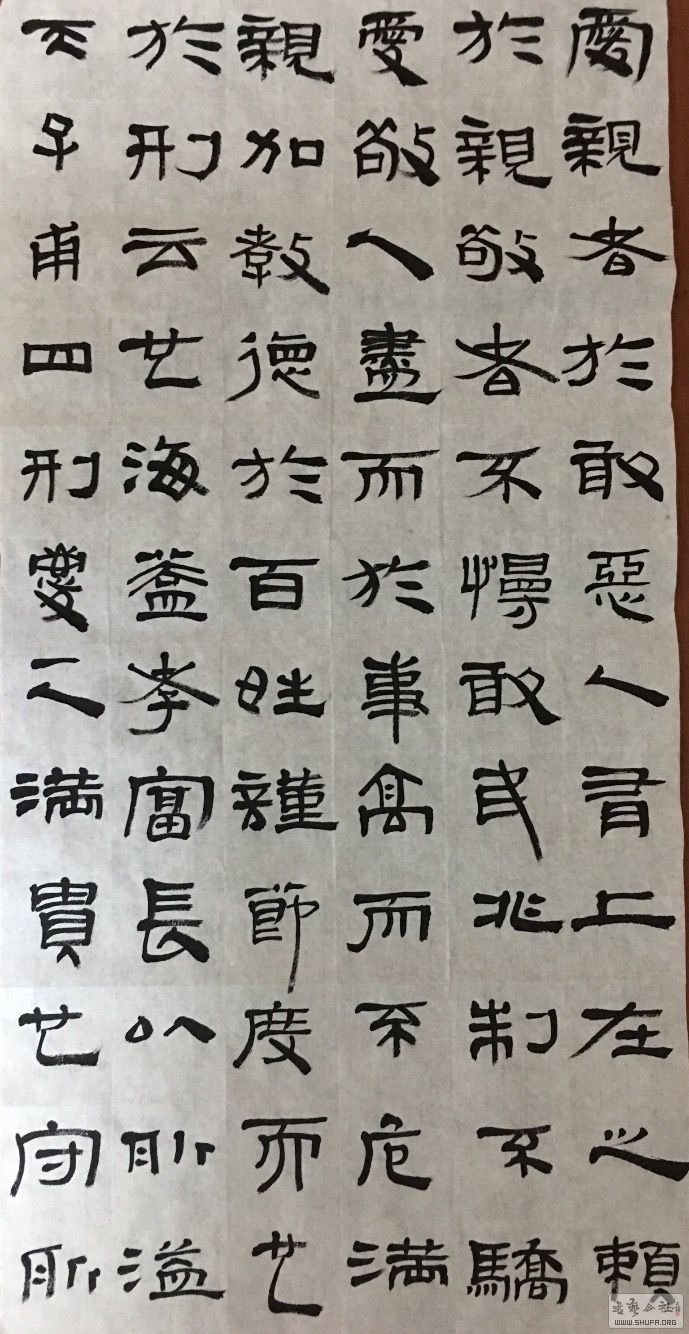 愛親者於敢惡人有上在之賴
於親敬者不慢敢民兆制不驕
愛敬人盡而於事高而不危滿
親加教德於百姓謹節度而也
於刑云也海蓋孝富長以所溢
天子甫四刑慶一人滿貴也守所
書藝公社
WWW.SHUFA.ORG